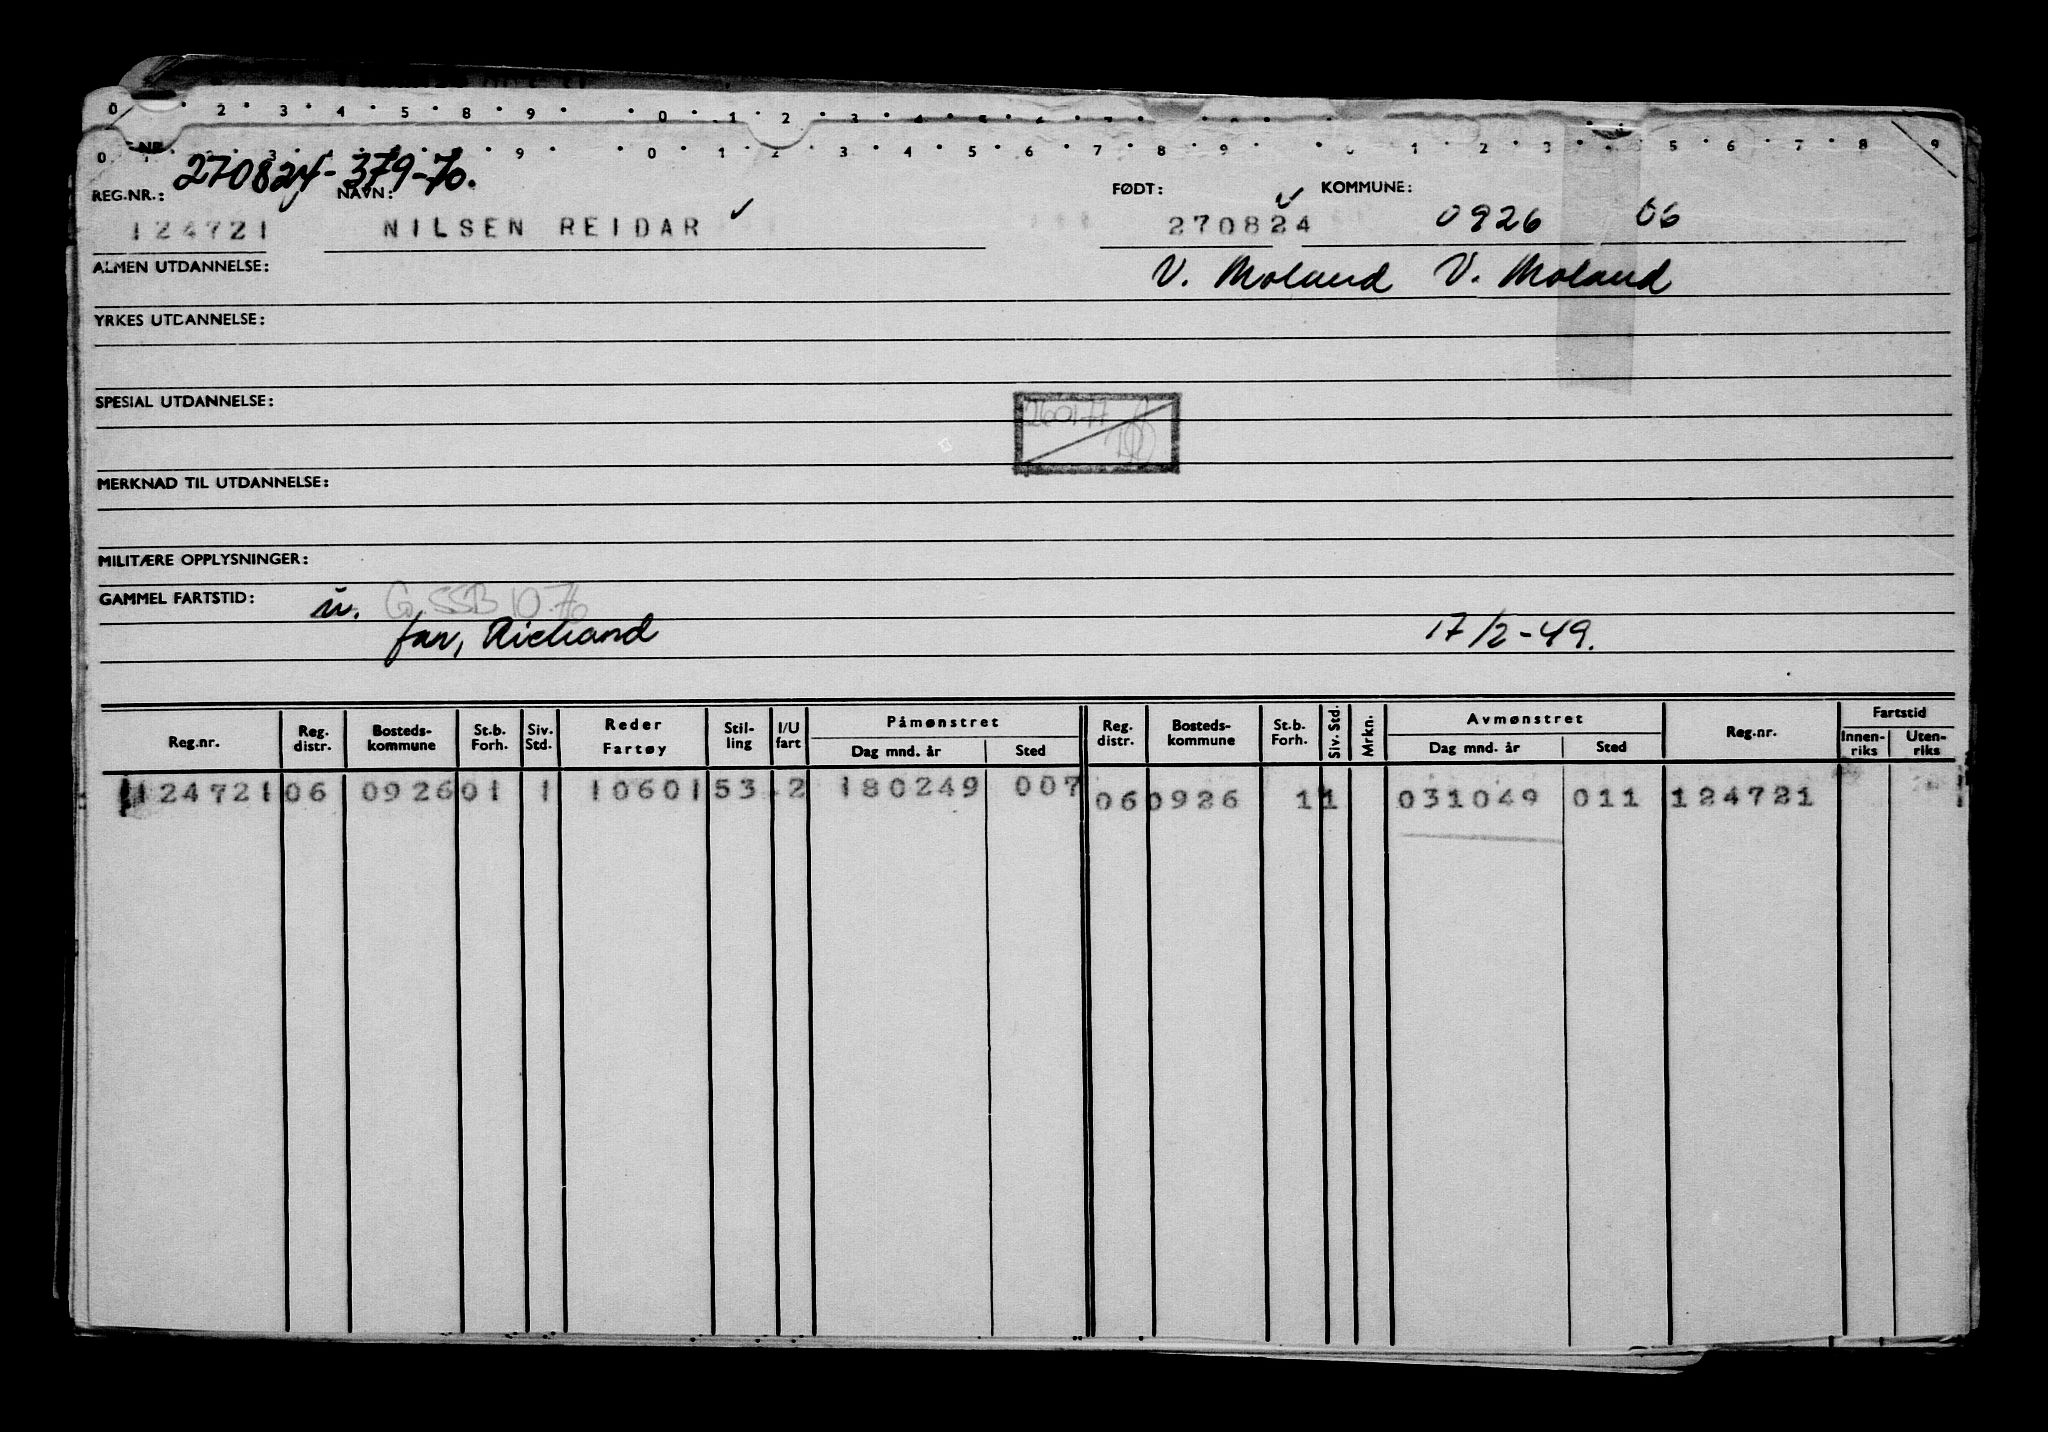 0 2 3 4 5 8 9 0 1 2 3 4 5 6 7
0 1 2 3 9 0 1 2 3 4 5 6 7 8 9 0 1 2 3 5 6 7 8 9
270824-379-70.
REG.NR.: NAVN: FØDT: KOMMUNE:
124721 NILSEN REIDAR 270824 0926 06
ALMEN UTDANNELSE: V. Moland V. Moland
YRKES UTDANNELSE:
SPESIAL UTDANNELSE:
260177
MERKNAD TIL UTDANNELSE:
MILITÆRE OPPLYSNINGER:
GAMMEL FARTSTID: u. G. SSB 10.76
far, Richard 17/2-49.
Reg.nr. Reg. distr. Bosteds- kommune St.b. Forh. Siv. Std. Reder Fartøy Stil- ling I/U fart Påmønstret Dag mnd. år Sted Reg. distr. Bosteds- kommune St.b. Forh. Siv. Std. Mrkn. Avmønstret Dag mnd. år Sted Reg.nr. Fartstid Innen- riks Uten- riks
124721 06 0926 01 1 10601 53 2 180249 007 06 0926 1 1 031049 011 124721